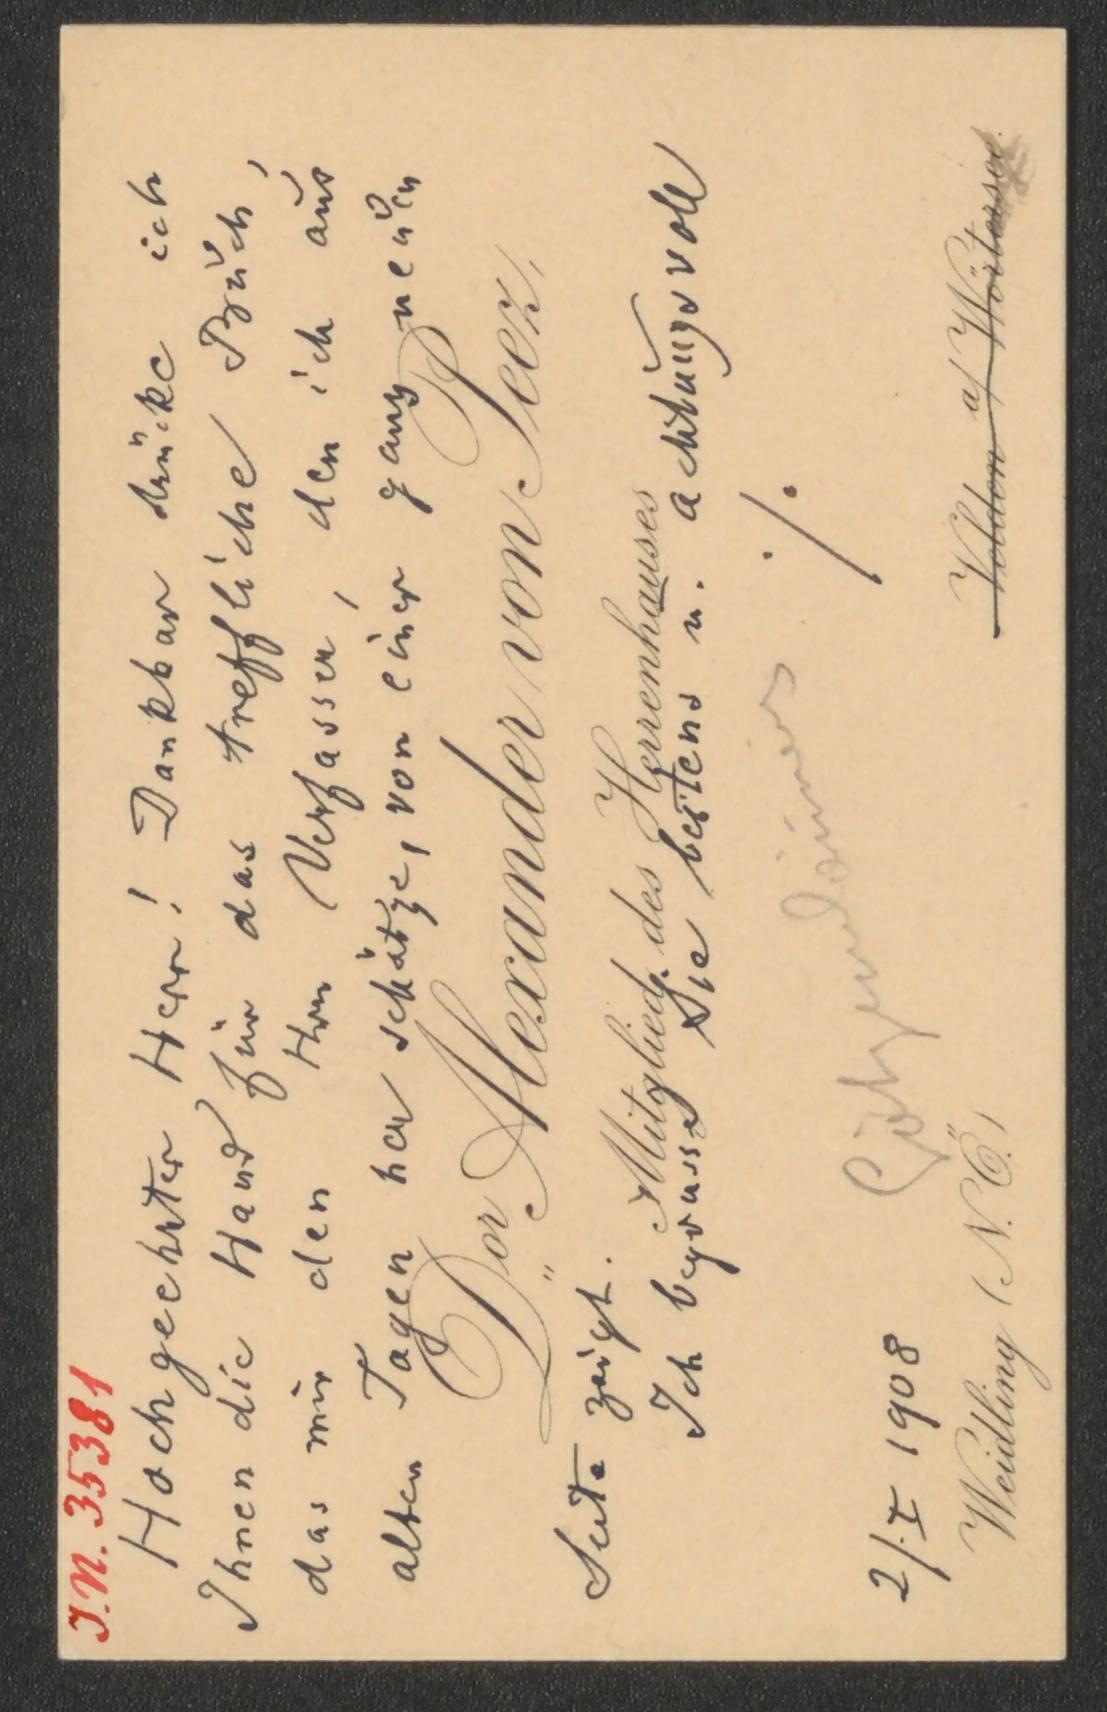 I.N. 35381
Hochgeehrter Herr! Dankbar drücke ich
Ihnen die Hand für das treffliche Buch,
das mir den Hrn Verfasser, den ich aus
alten Tagen her schätze, von einer ganz neuen
Dor Alexander von Peez,
Seite zeigt.
Mitglied des Herrenhauses
Ich begrüsse Sie bestens u. achtungsvoll
./.
2/I 1908
Weidling (N.Ö.)
Velden a/ Wörtersee.